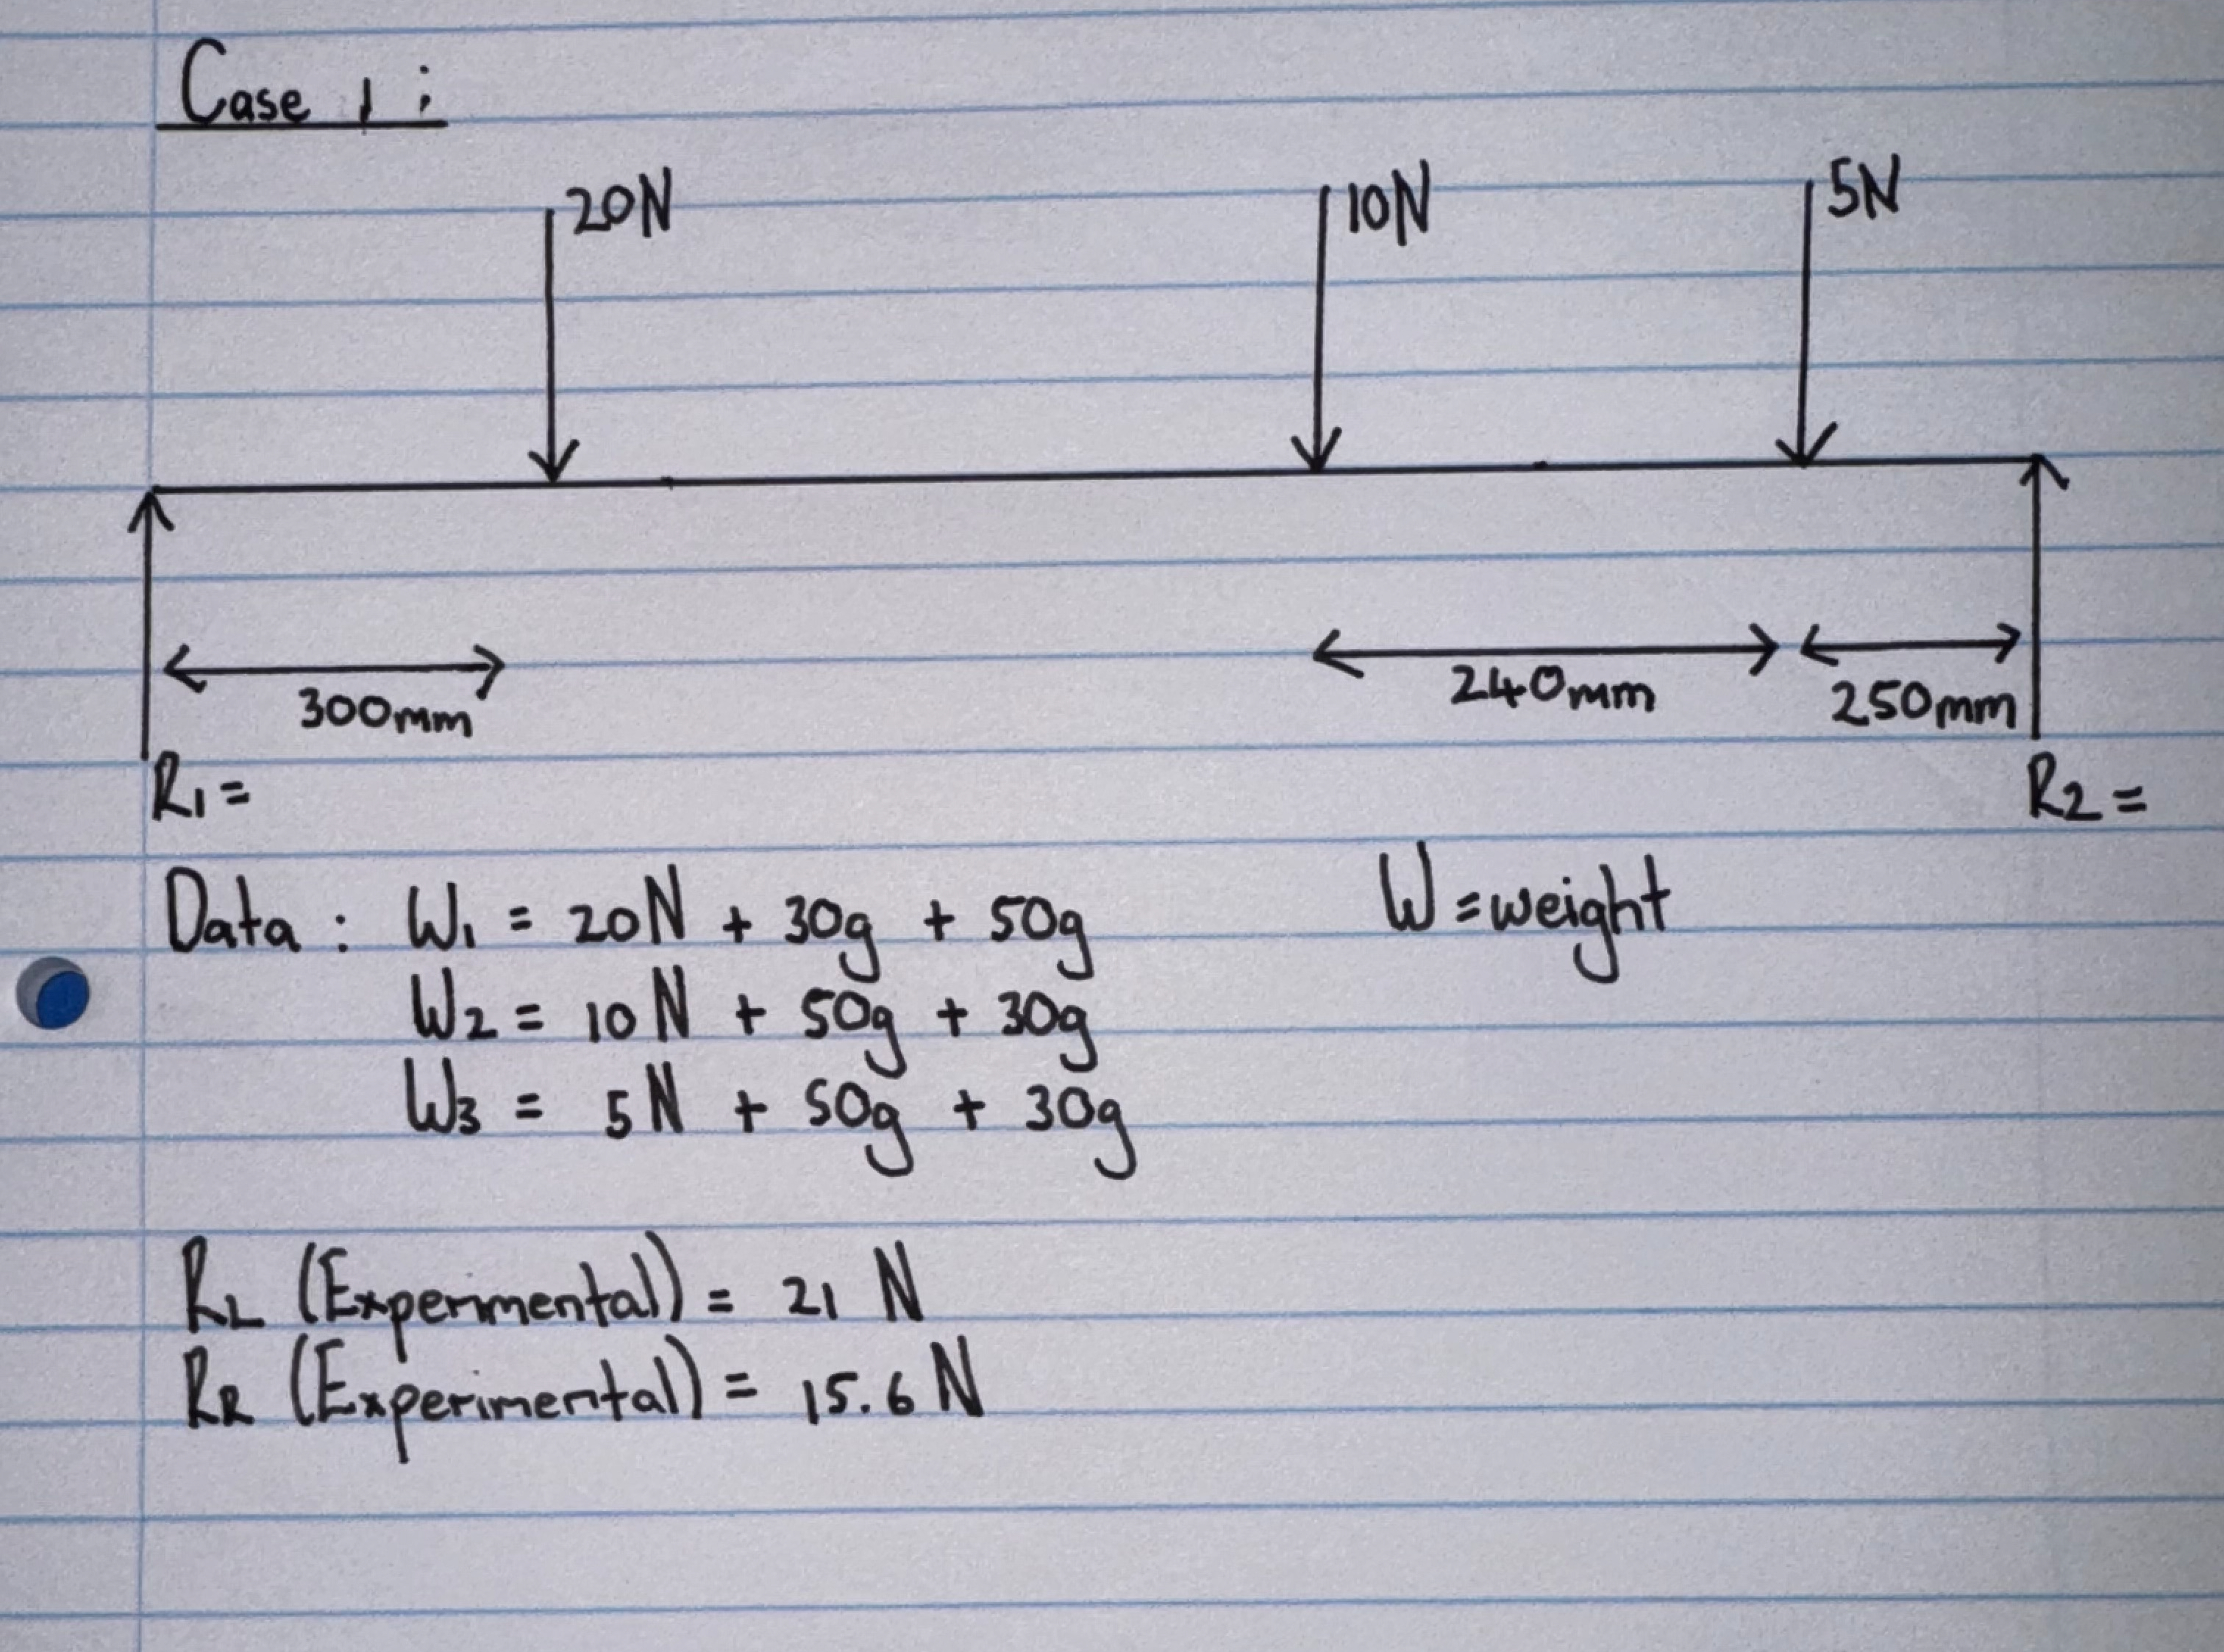 Case 1 :
20N 10N 5N
300mm 240mm 250mm
R1 = R2 =
Data : W1 = 20N + 30g + 50g W = weight
W2 = 10N + 50g + 30g
W3 = 5N + 50g + 30g
RL (Experimental) = 21 N
RR (Experimental) = 15.6 N